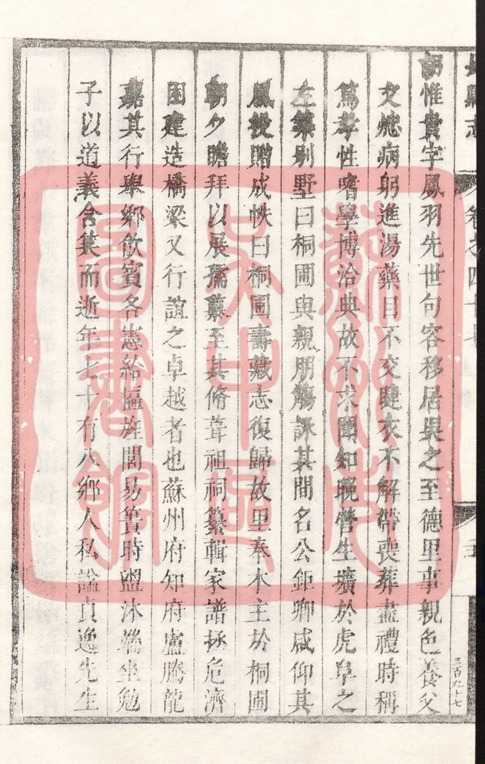 縣志
胡惟貴字鳳羽先世句容移居吳之至德里事親色養父
文病躬進湯藥目不交睫衣不解帶喪葬盡禮時稱
篤孝性嗜學博洽典故不求聞知晚營生壙於虎阜之
左築別墅曰桐圃與親朋觴詠其間名公鉅卿咸仰其
風投贈成帙曰桐圃壽藏志復歸故里奉木主於桐圃
朝夕瞻拜以展孺慕至其脩葺祖祠纂輯家譜拯危濟
困建造橋梁又行誼之卓越者也蘇州府知府盧騰龍
嘉其行舉鄉飲賓各憲給匾旌閭易簀時盥沐端坐勉
子以道義含笑而逝年七十有八鄉人私謚貞逸先生
三百九十七
蘇州市
吳中區
圖書館